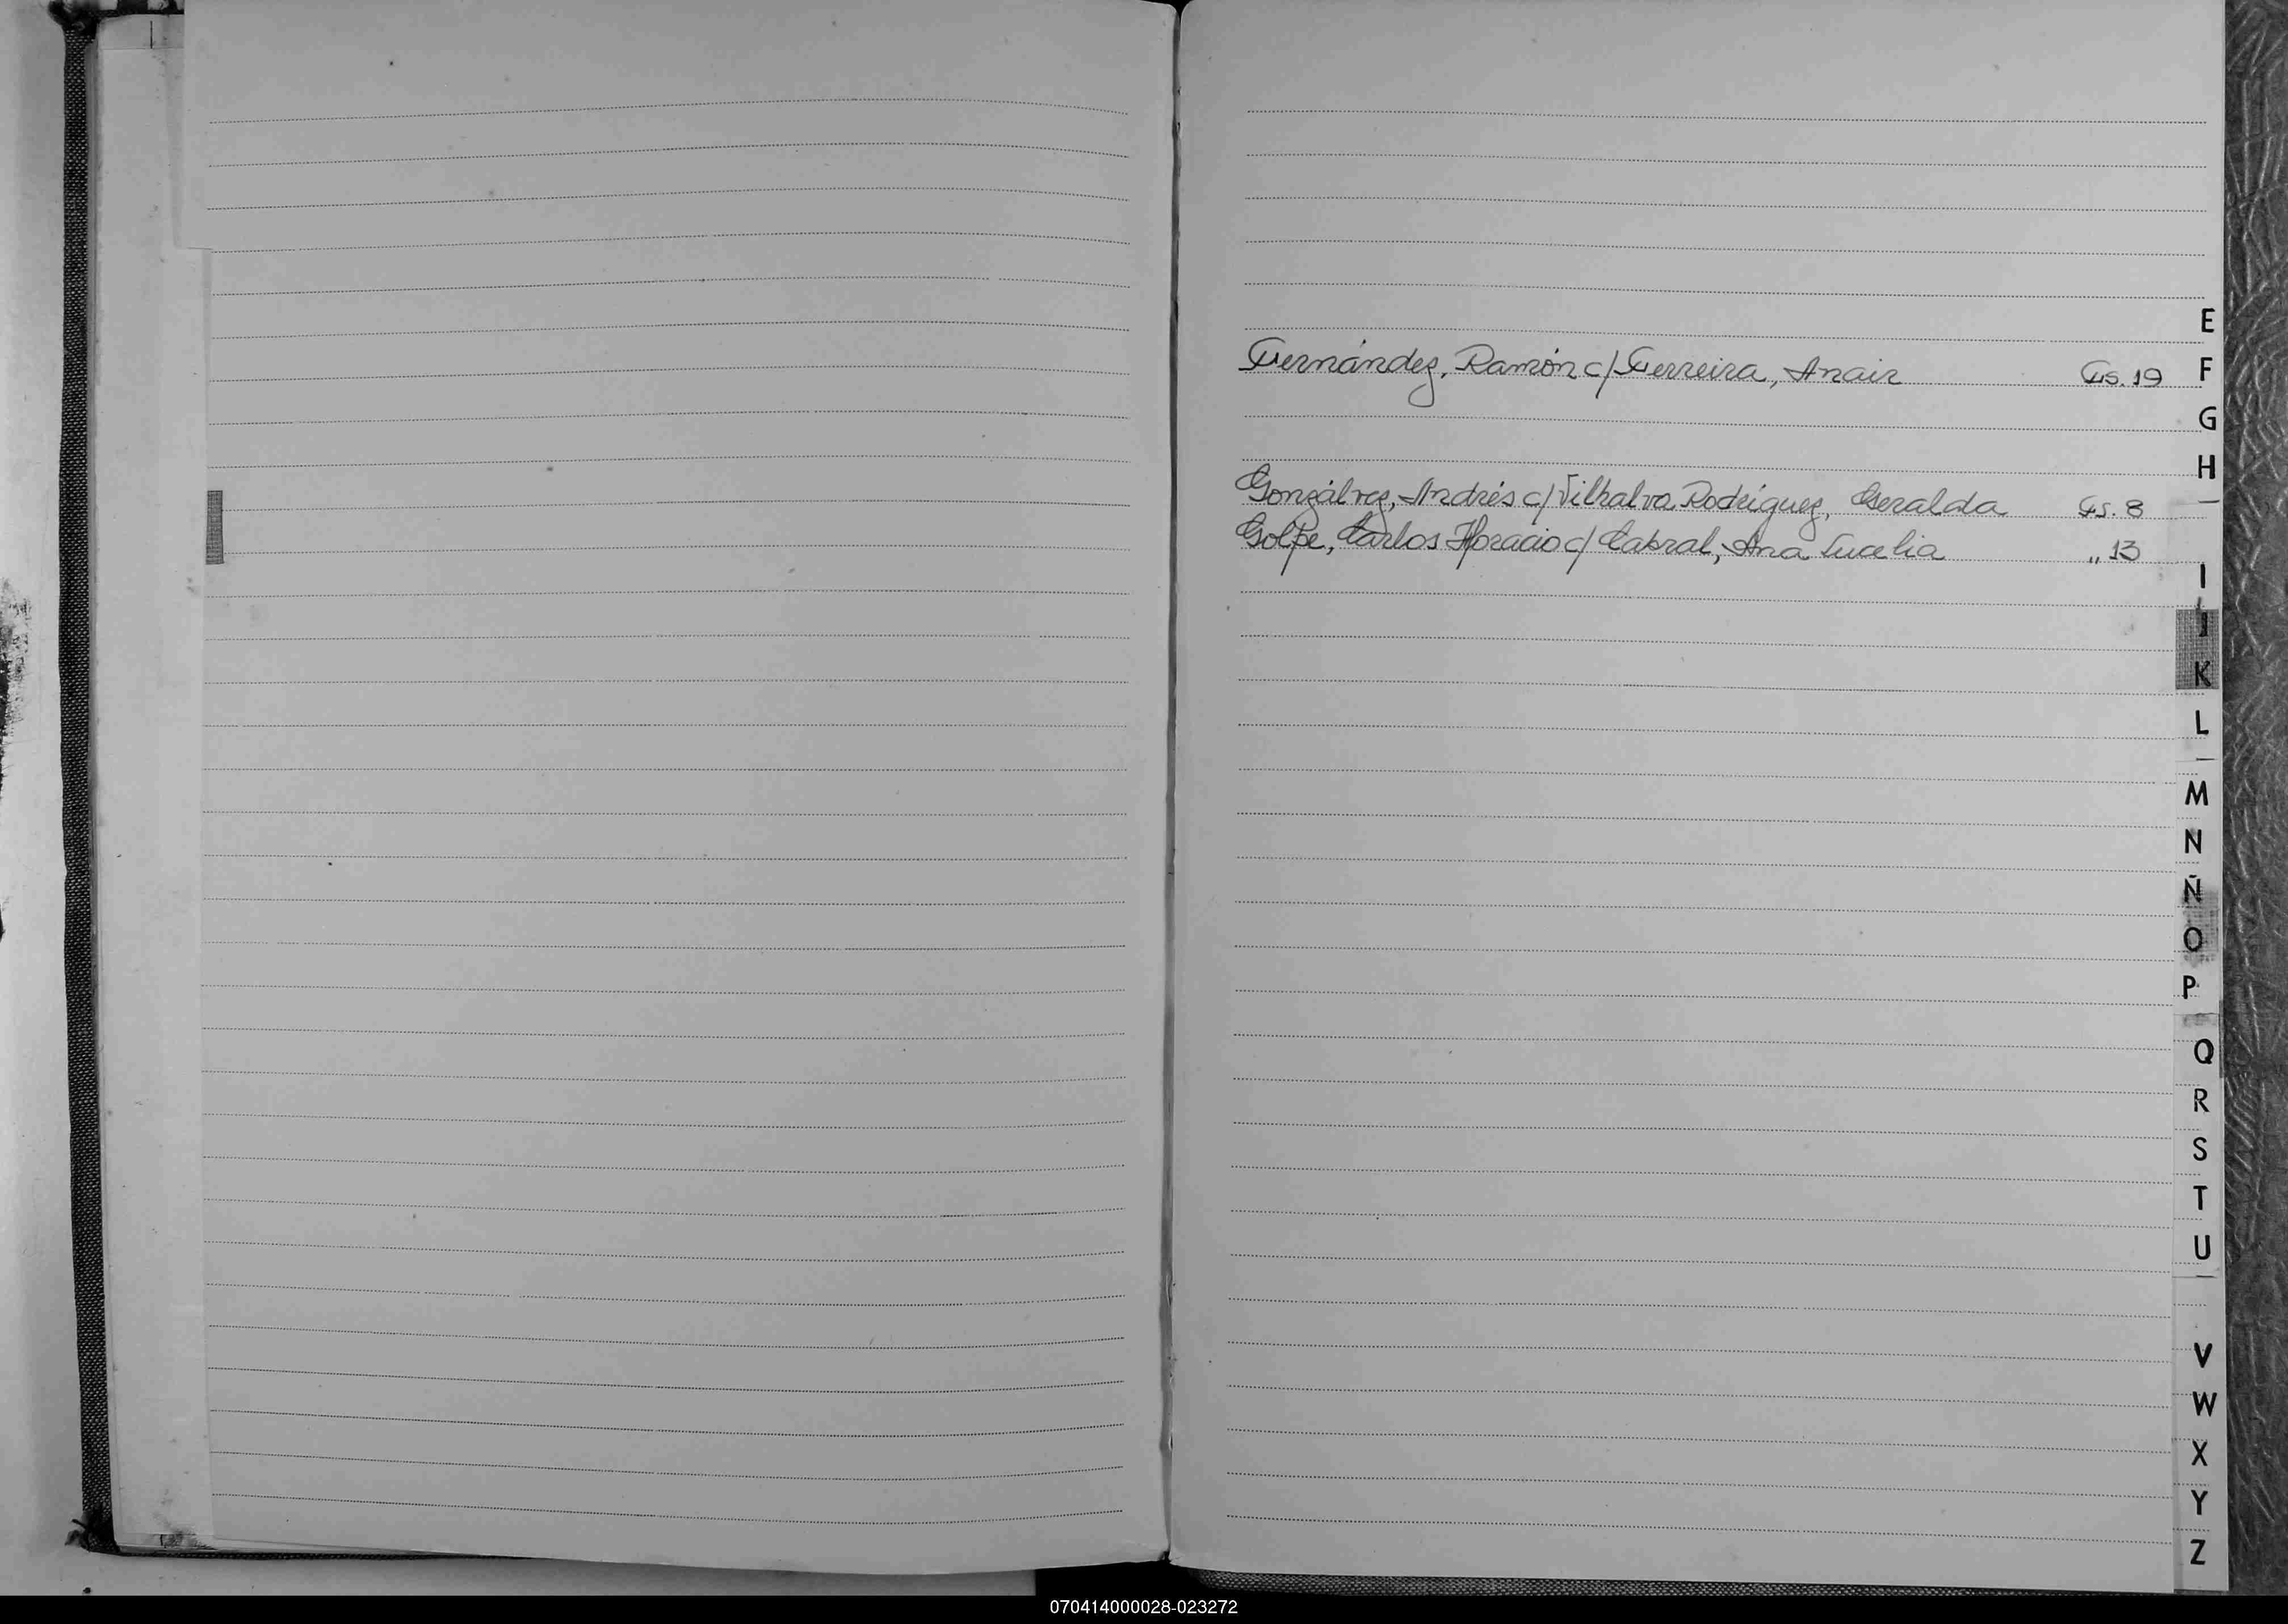 E
Fernández, Ramón c/ Ferreira, Anair Fs. 19
F
G
H
Gonzálvez, Andrés c/ Vilhalva Rodríguez, Geralda Fs. 8
Golpe, Carlos Horacio c/ Cabral, Ana Lucelia " 13
I
J
K
L
M
N
Ñ
O
P
Q
R
S
T
U
V
W
X
Y
Z
070414000028-023272